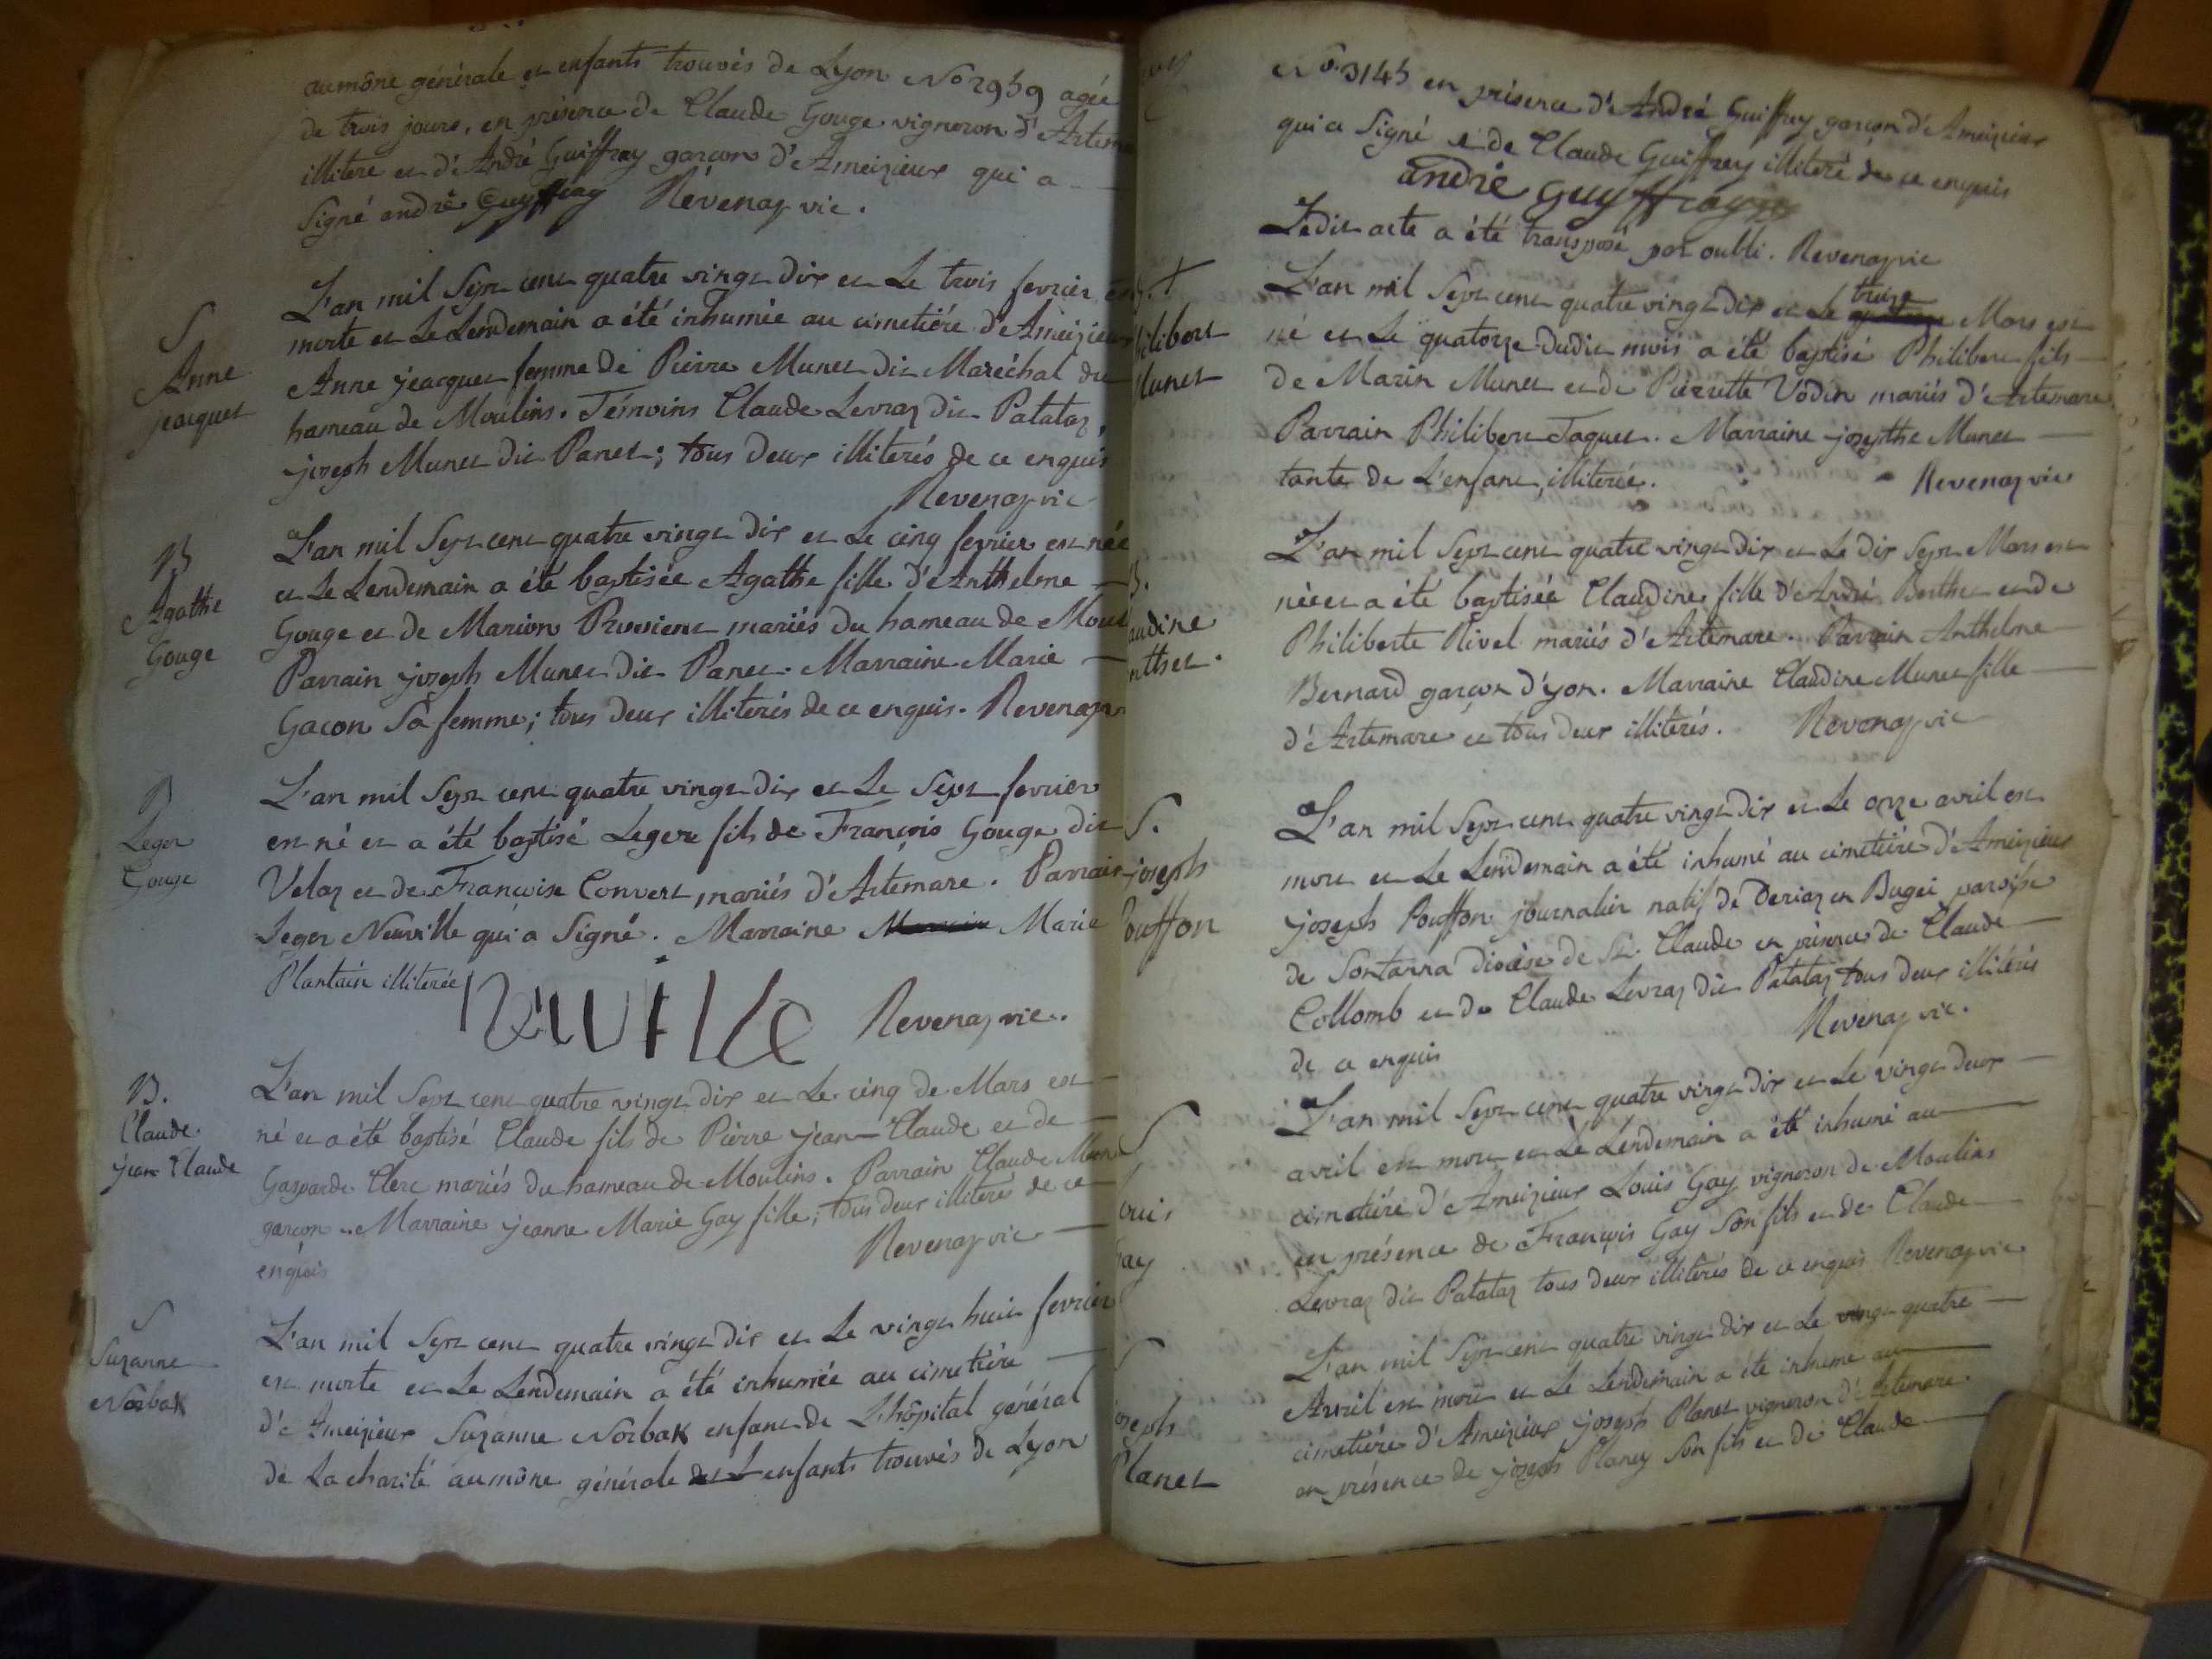 aumône générale et enfants trouvés de Lyon No 2959 agée
de trois jours, en présence de Claude Gouge vigneron d'Artema
illitere et d'André Guiffray garçon d'Ameizieux qui a
Signé andré Guyffray Révenaz vic.
S
Anne
jeacquet
L'an mil Sept cent quatre vingt dix et Le trois fevrier est
morte et Le Lendemain a été inhumée au cimetiére d'Ameizieux
Anne jeacquet femme de Pierre Munet dit Maréchal du
hameau de Moulins. Témoins Claude Levraz dit Patataz,
joseph Munet dit Panet; tous deux illiterés de ce enquis
Revenaz vic
B
Agathe
Gouge
L'an mil Sept cent quatre vingt dix et Le cinq fevrier est née
et Le Lendemain a été baptisée Agathe fille d'Anthelme
Gouge et de Marion mariés du hameau de Moul
Parrain joseph Munet dit Panet. Marraine Marie
Gacon Sa femme; tous deux illiterés de ce enquis. Revenaz v
B
Leger
Gouge
L'an mil Sept cent quatre vingt dix et Le Sept fevrier
est né et a été baptisé Leger fils de François Gouge dit
Velaz et de Françoise Convert, mariés d'Artémare. Parrain
Leger Neuville qui a Signé. Marraine Marie
Plantain illiterée Neuville Revenaz vic.
B.
Claude
jean Claude
L'an mil Sept cent quatre vingt dix et Le cinq de Mars est
né et a été baptisé Claude fils de Pierre jean-Claude et de
Gasparde Clerc mariés du hameau de Moulins. Parrain Claude Mune
garçon. Marraine jeanne Marie Gay fille; tous deux illiterés de ce
enquis Revenaz vic
S
Suzanne
Norbak
L'an mil Sept cent quatre vingt dix et Le vingt huit fevrier
est morte et Le Lendemain a été inhumée au cimetiére
d'Ameizieux Suzanne Norbak enfant de L'hôpital général
de La charité aumône générale et enfants trouvés de Lyon
No. 3145 en présence d'André Guiffrey garçon d'Ameizieux
qui a Signé et de Claude Guiffrey illiteré de ce enquis
andré Guyffray
Ledit acte a été transposé par oubli. Revenaz vic
hilibert
Munet
L'an mil Sept cent quatre vingt dix et Le treize Mars est
né et Le quatorze dudit mois a été baptisé Philibert fils
de Marin Munet et de Pierrette Vodin mariés d'Artemare
Parrain Philibert Jaquet. Marraine josepthe Munet
tante de L'enfant, illiterée. Revenaz vic
B.
audine
nthet.
L'an mil Sept cent quatre vingt dix et Le dix Sept Mars est
née et a été baptisée Claudine fille d'André Berthet et de
Philiberte Nivel mariés d'Artemare. Parrain Anthelme
Bernard garçon d'yon. Marraine Claudine Munet fille
d'Artemare et tous deux illiterés. Revenaz vic
S.
joseph
Pouffon
L'an mil Sept cent quatre vingt dix et Le onze avril est
mort et Le Lendemain a été inhumé au cimetiére d'Ameizieux
joseph Pouffon journalier natif de Deriaz en Bugei paroisse
de Sontanna diocèse de St. Claude en présence de Claude
Collomb et de Claude Levraz dit Patataz tous deux illiterés
de ce enquis Revenaz vic.
S
Louis
Gay
L'an mil Sept cent quatre vingt dix et Le vingt deux
avril est mort et Le Lendemain a été inhumé au
cimetiére d'Ameizieux Louis Gay vigneron de Moulins
en présence de François Gay Son fils et de Claude
Levraz dit Patataz tous deux illiterés de ce enquis Revenaz vic
S
joseph
Planet
L'an mil Sept cent quatre vingt dix et Le vingt quatre
Avril est mort et Le Lendemain a été inhumé au
cimetiére d'Ameizieux joseph Planet vigneron d'Artemare.
en présence de joseph Planey Son fils et de Claude